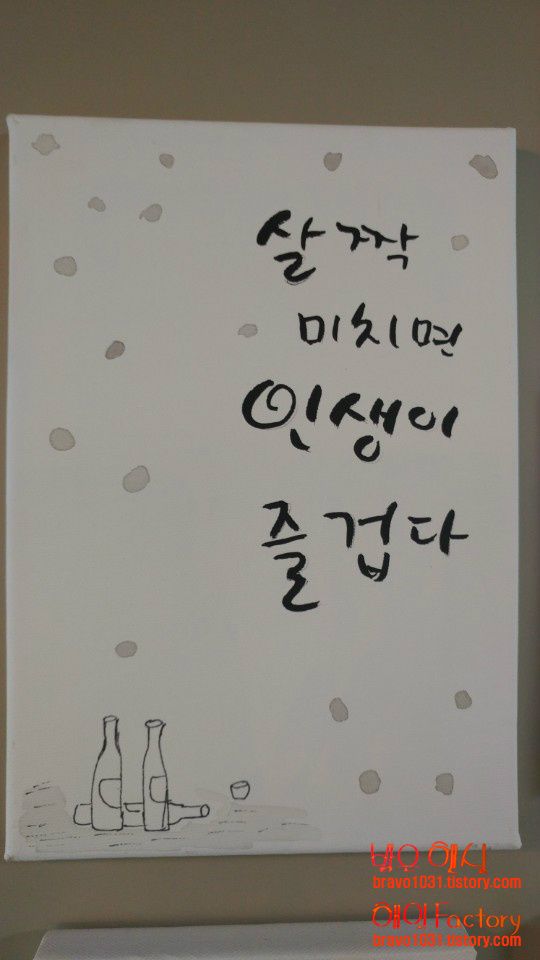 살짝
미치면
인생이
즐겁다
bravo1031.tistory.com
해피Factory
bravo1031.tistory.com